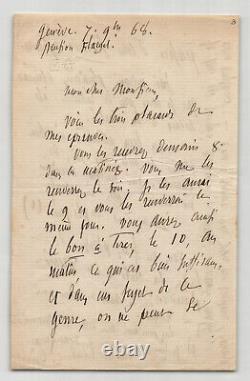 genève. 7. 9bre 68.
pension Flaegel.
mon cher Monsieur,
voici les trois placards de
mes épreuves.
vous les rendrez demain 8
dans la matinée. vous me les
renverrez le soir, je les aurai
le 9 et vous les renverrai le
même jour. vous aurez ainsi
le bon à tirer, le 10, au
matin ce qui est bien suffisant,
et dans un sujet de ce
genre, on ne peut se
© ebay